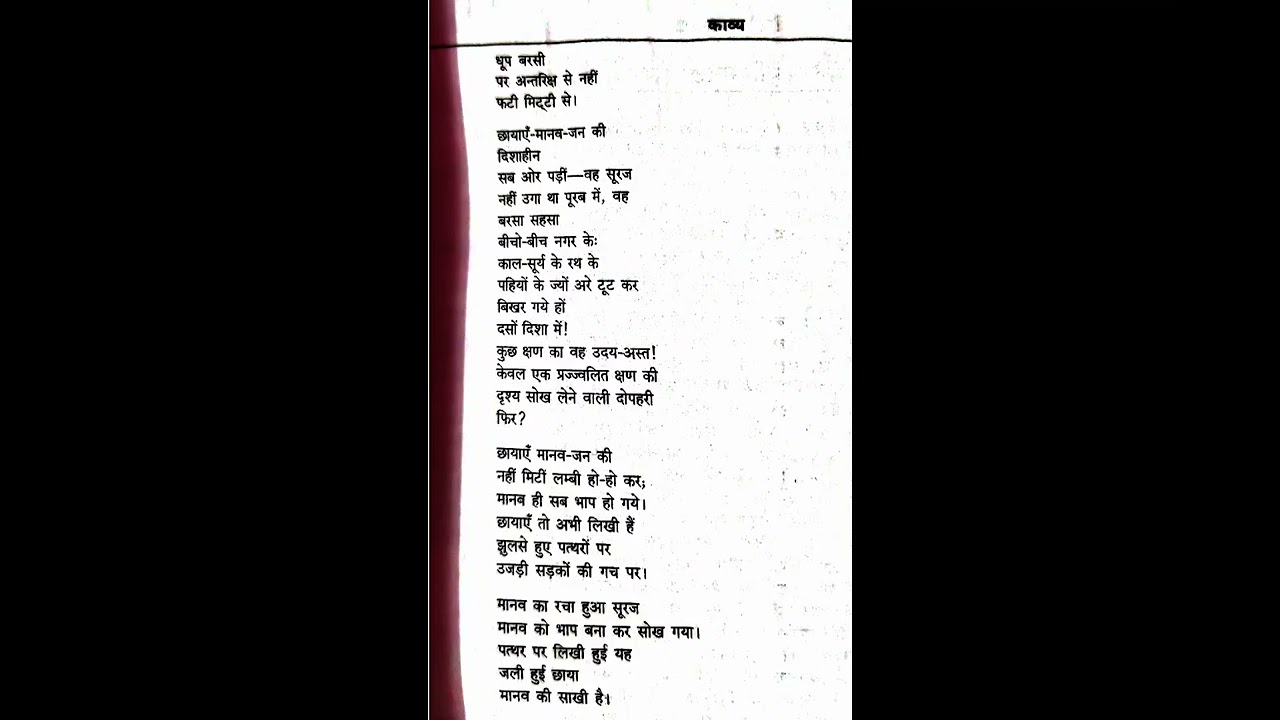 काव्य
धूप बरसी
पर अन्तरिक्ष से नहीं
फटी मिट्टी से।
छायाएँ-मानव-जन की
दिशाहीन
सब ओर पड़ीं—वह सूरज
नहीं उगा था पूरब में, वह
बरसा सहसा
बीचो-बीच नगर केः
काल-सूर्य के रथ के
पहियों के ज्यों अरे टूट कर
बिखर गये हों
दसों दिशा में!
कुछ क्षण का वह उदय-अस्त!
केवल एक प्रज्ज्वलित क्षण की
दृश्य सोख लेने वाली दोपहरी
फिर?
छायाएँ मानव-जन की
नहीं मिटीं लम्बी हो-हो कर;
मानव ही सब भाप हो गये।
छायाएँ तो अभी लिखी हैं
झुलसे हुए पत्थरों पर
उजड़ी सड़कों की गच पर।
मानव का रचा हुआ सूरज
मानव को भाप बना कर सोख गया।
पत्थर पर लिखी हुई यह
जली हुई छाया
मानव की साखी है।